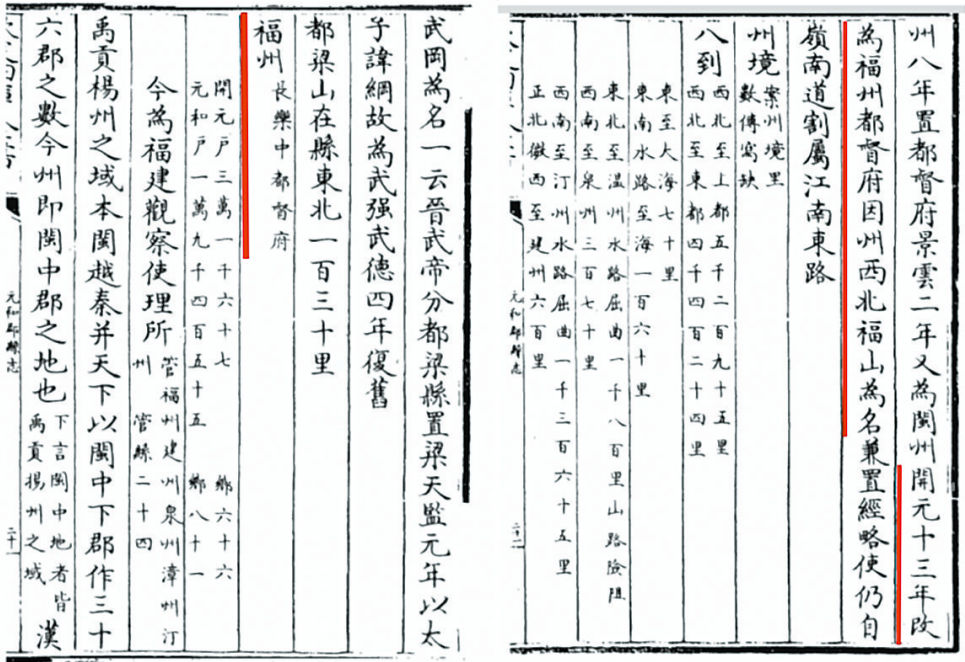 武岡為名一云晉武帝分都梁縣置梁天監元年以太
子諱綱故為武强武德四年復舊
都梁山在縣東北一百三十里
福州 長樂中都督府
開元戶三萬一千六十七 鄉六十六
元和戶一萬九千四百五十五 鄉八十一
今為福建觀察使理所 管福州建州泉州漳州汀
州 管縣二十四
禹貢楊州之域本閩越秦并天下以閩中下郡作三十
六郡之數今州即閩中郡之地也 下言閩中地者皆
禹貢揚州之域 漢
元和郡縣志 二十一
州八年置都督府景雲二年又為閩州開元十三年改
為福州都督府因州西北福山為名兼置經略使仍自
嶺南道割屬江南東路
州境 案州境里
數傳寫缺
八到 西北至上都五千二百九十五里
西北至東都四千四百二十四里
東至大海七十里
東南水路至海一百六十里
東北至温州水路屈曲一千八百里山路險阻
西南至泉州三百七十里
西南至汀州水路屈曲一千三百六十五里
正北微西至建州六百里
元和郡縣志 二十二